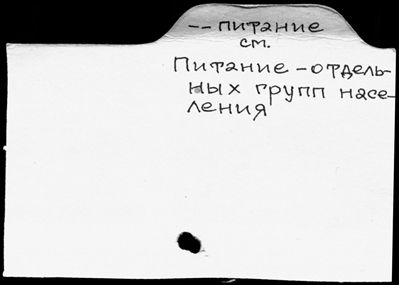 -- питание
см.
Питание - отдель-
ных групп насе-
ления